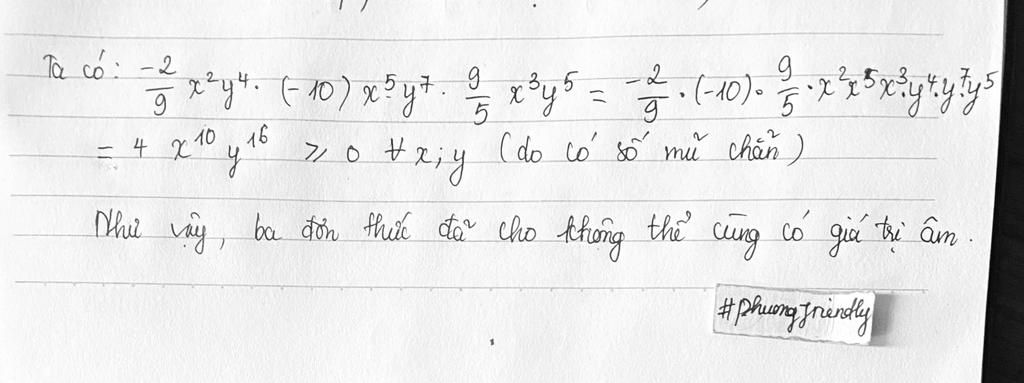 Ta có: -2/9 x²y⁴ . (-10) x⁵y⁷ . 9/5 x³y⁵ = -2/9 . (-10) . 9/5 . x²x⁵x³.y⁴.y⁷.y⁵
= 4 x¹⁰ y¹⁶ ≥ 0 ∀ x; y (do có số mũ chẵn)
Như vậy, ba đơn thức đã cho không thể cùng có giá trị âm.
#phuongfriendly